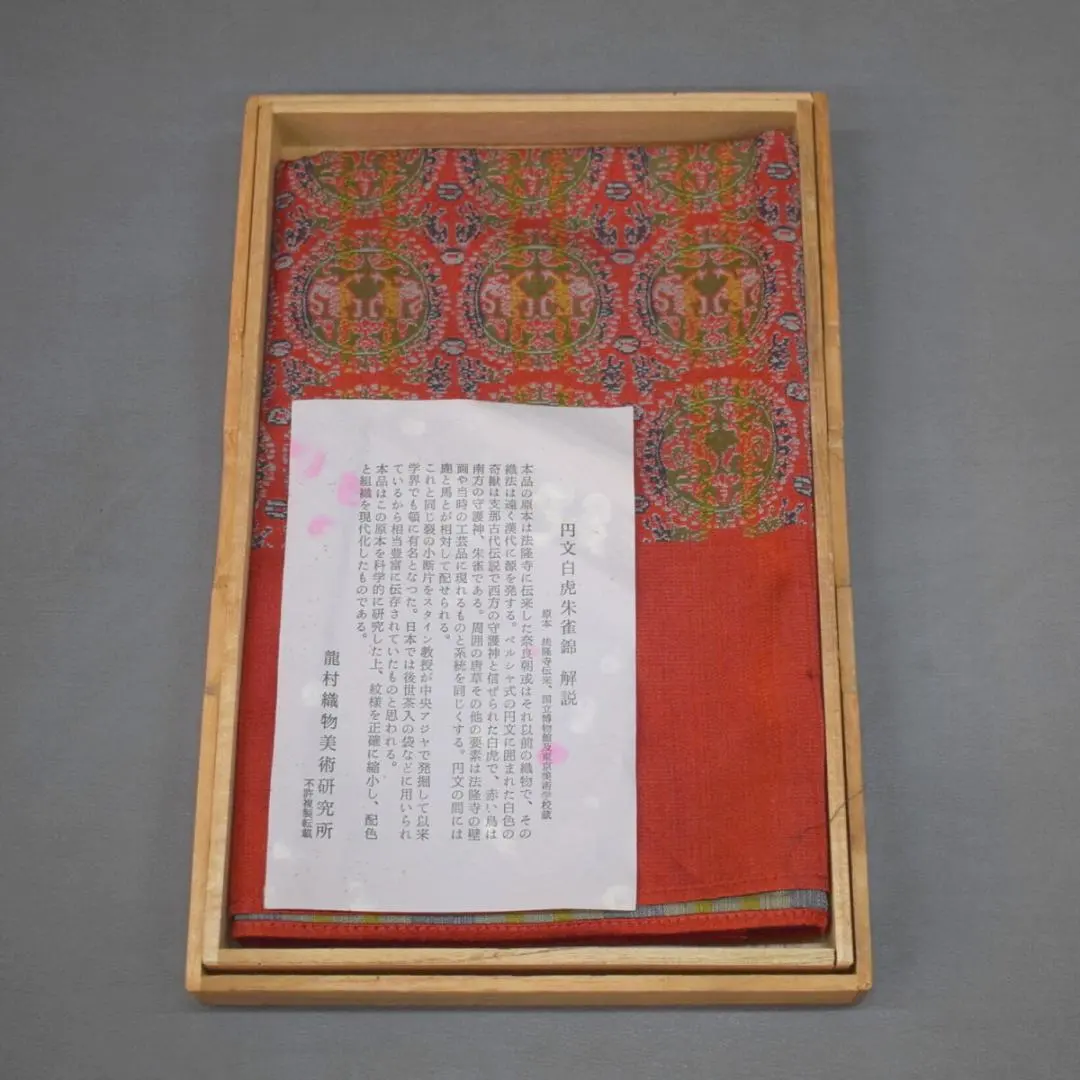 円文白虎朱雀錦 解説
原本 法隆寺伝来、国立博物館及東京美術学校蔵
本品の原本は法隆寺に伝来した奈良朝或はそれ以前の織物で、その
織法は遠く漢代に源を発する。ペルシャ式の円文に囲まれた白色の
奇獣は支那古代伝説で西方の守護神と信ぜられた白虎で、赤い鳥は
南方の守護神、朱雀である。周囲の唐草その他の要素は法隆寺の壁
画や当時の工芸品に現れるものと系統を同じくする。円文の間には
麈と馬とが相対して配せられる。
これと同じ裂の小断片をスタイン教授が中央アジヤで発掘して以来
学界でも頓に有名となつた。日本では後世茶入の袋などに用いられ
ているから相当豊富に伝存されていたものと思われる。
本品はこの原本を科学的に研究した上、紋様を正確に縮小し、配色
と組織を現代化したものである。
龍村織物美術研究所
不許複製転載